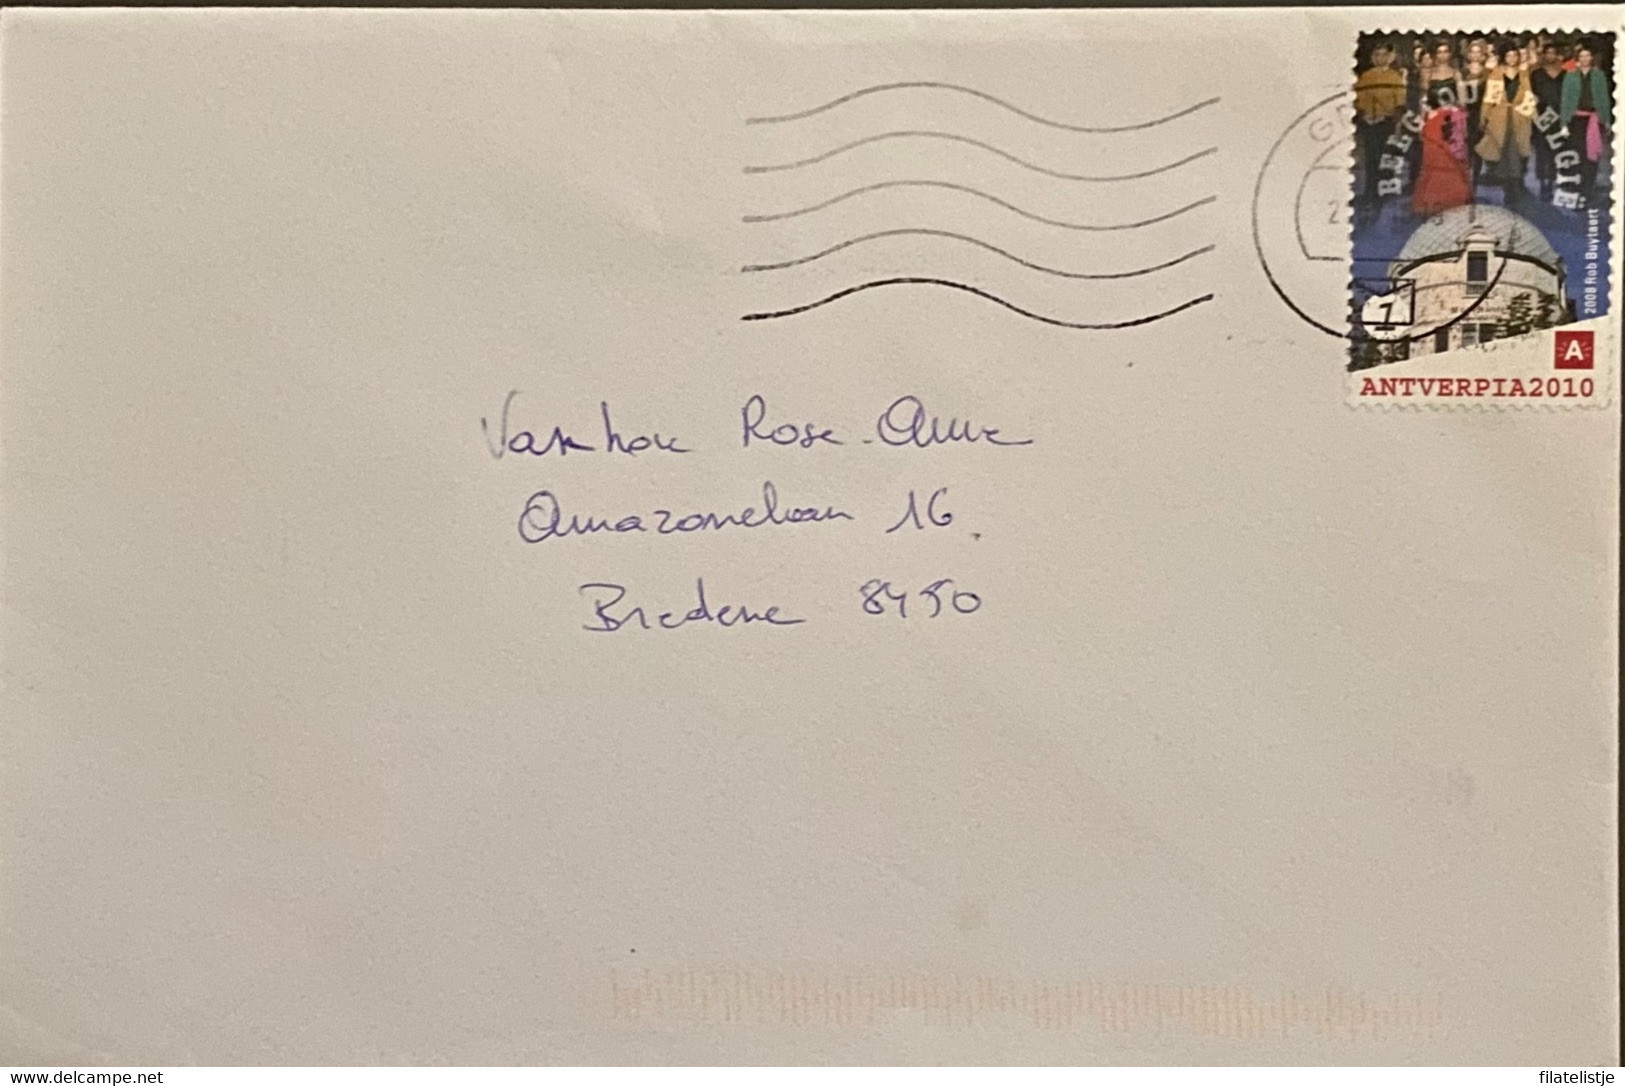 BELGIQUE BELGIË
2008 Rob Buytaert
1
A
ANTVERPIA2010
Rose-Anne
Amazonelaan 16.
Bredene 8450
www.delcampe.net
filatelistje